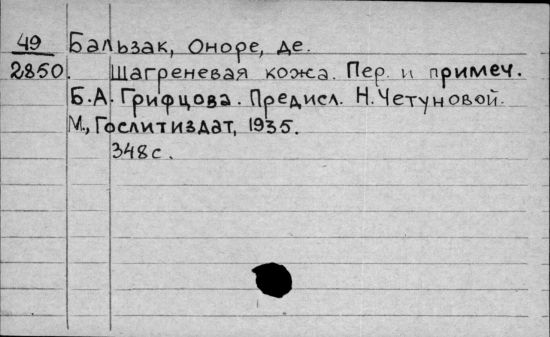 49 Бальзак, Оноре, де.
2850. Шагреневая кожа. Пер. и примеч.
Б.А. Грифцова. Предисл. Н. Четуновой.
М., Гослитиздат, 1935.
348с.